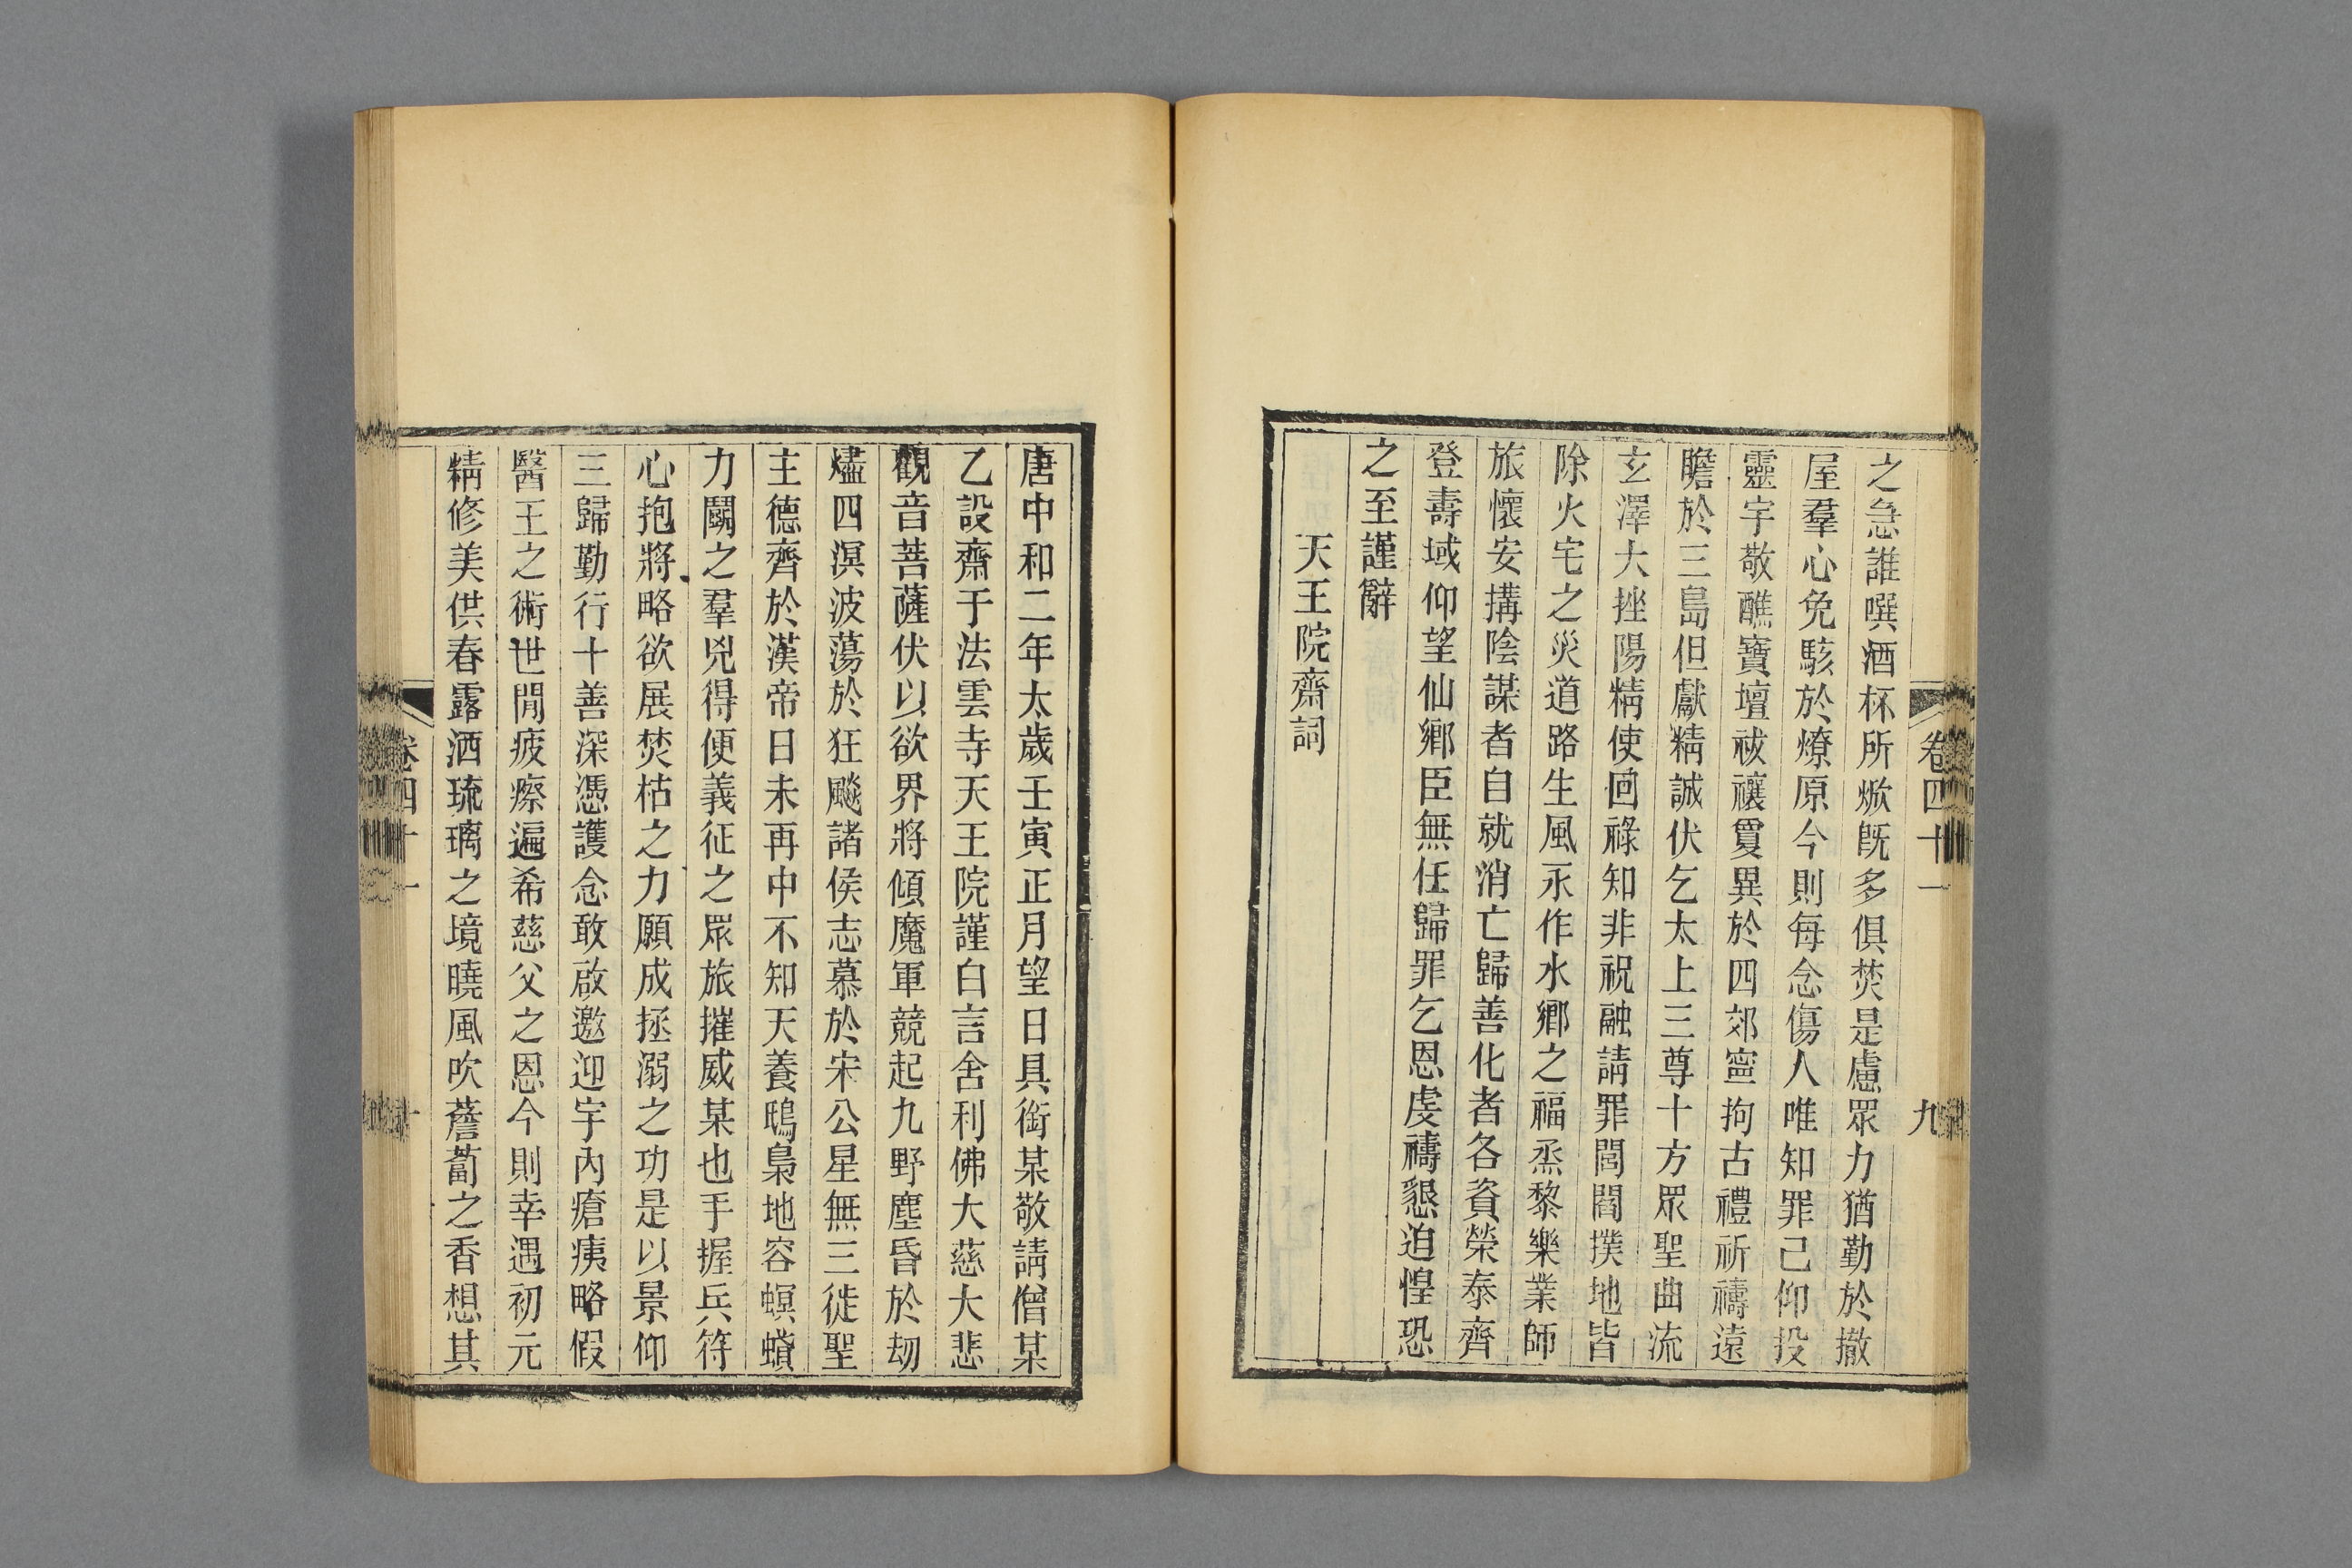 卷四十一
九
之急誰噀酒杯所焮旣多俱焚是慮眾力猶勤於撤
屋羣心免駭於燎原今則每念傷人唯知罪己仰投
靈宇敬醮寶壇祓禳敻異於四郊寧拘古禮祈禱遠
瞻於三島但獻精誠伏乞太上三尊十方眾聖曲流
玄澤大挫陽精使回祿知非祝融請罪閭閻撲地皆
除火宅之災道路生風永作水鄉之福烝黎樂業師
旅懷安搆陰謀者自就消亡歸善化者各資榮泰齊
登壽域仰望仙鄉臣無任歸罪乞恩虔禱懇迫惶恐
之至謹辭
天王院齋詞
唐中和二年太歲壬寅正月望日具銜某敬請僧某
乙設齋于法雲寺天王院謹白言舍利佛大慈大悲
觀音菩薩伏以欲界將傾魔軍競起九野塵昏於刼
燼四溟波蕩於狂飈諸侯志慕於宋公星無三徙聖
主德齊於漢帝日未再中不知天養鴟梟地容螟蟘
力鬬之羣兇得便義征之眾旅摧威某也手握兵符
心抱將略欲展焚枯之力願成拯溺之功是以景仰
三歸勤行十善深憑護念敢啟邀迎宇內瘡痍略假
醫王之術世閒疲瘵遍希慈父之恩今則幸遇初元
精修美供春露洒琉璃之境曉風吹薝蔔之香想其
卷四十一
十